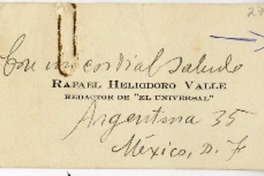 Con un cordial saludo
RAFAEL HELIODORO VALLE
REDACTOR DE "EL UNIVERSAL"
Argentina 35
México, D. F